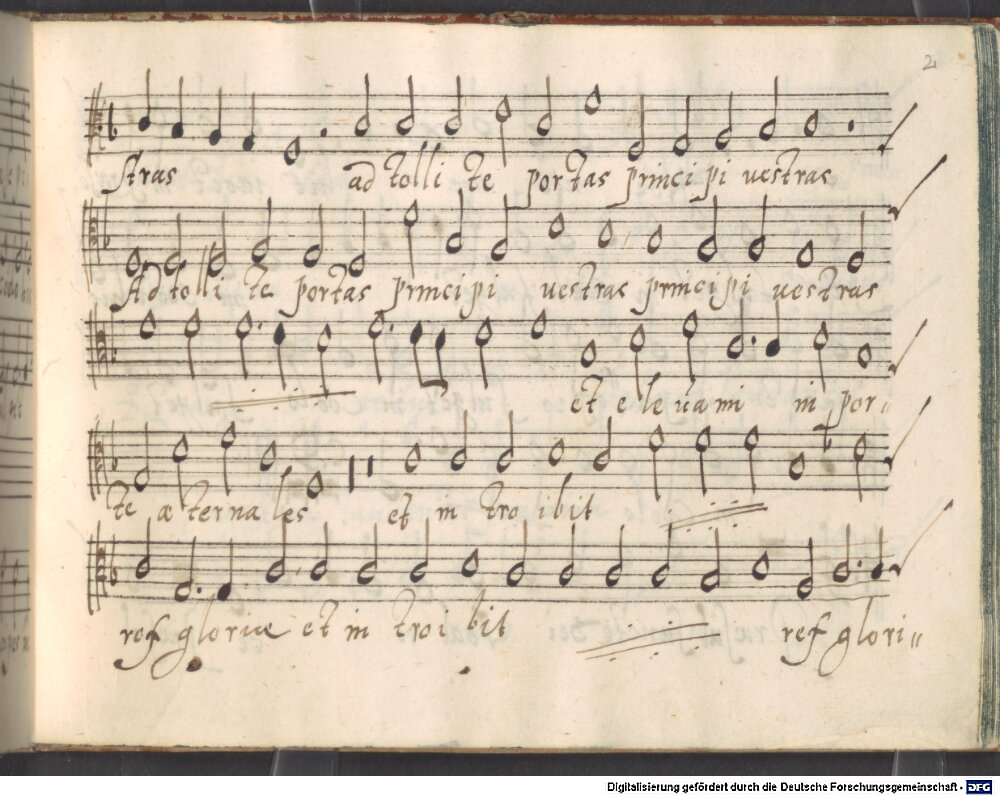 2
stras ad tolli te portas principi vestras
Ad tolli te portas principi vestras principi vestras
et e le va mi ni por
te æ ter na les et in tro ibit
rex gloriæ et in troi bit rex glori
Digitalisierung gefördert durch die Deutsche Forschungsgemeinschaft - DFG